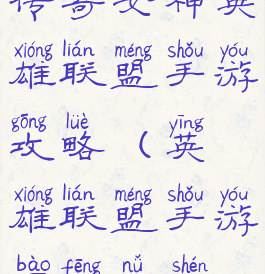 传奇女神英
xióng lián méng shǒu yóu
雄联盟手游
gōng lüè yīng
攻略（英
xióng lián méng shǒu yóu
雄联盟手游
bào fēng nǚ shén